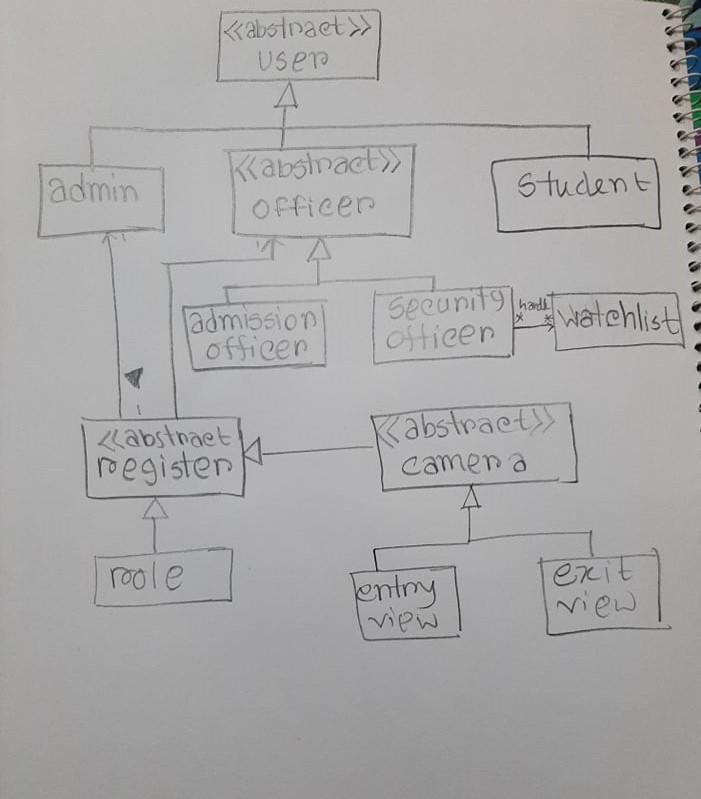 <<abstract>>
user
admin
<<abstract>>
officer
student
admission
officer
security
officer
* *
watchlist
<<abstract
register
<<abstract>>
camera
role
entry
view
exit
view